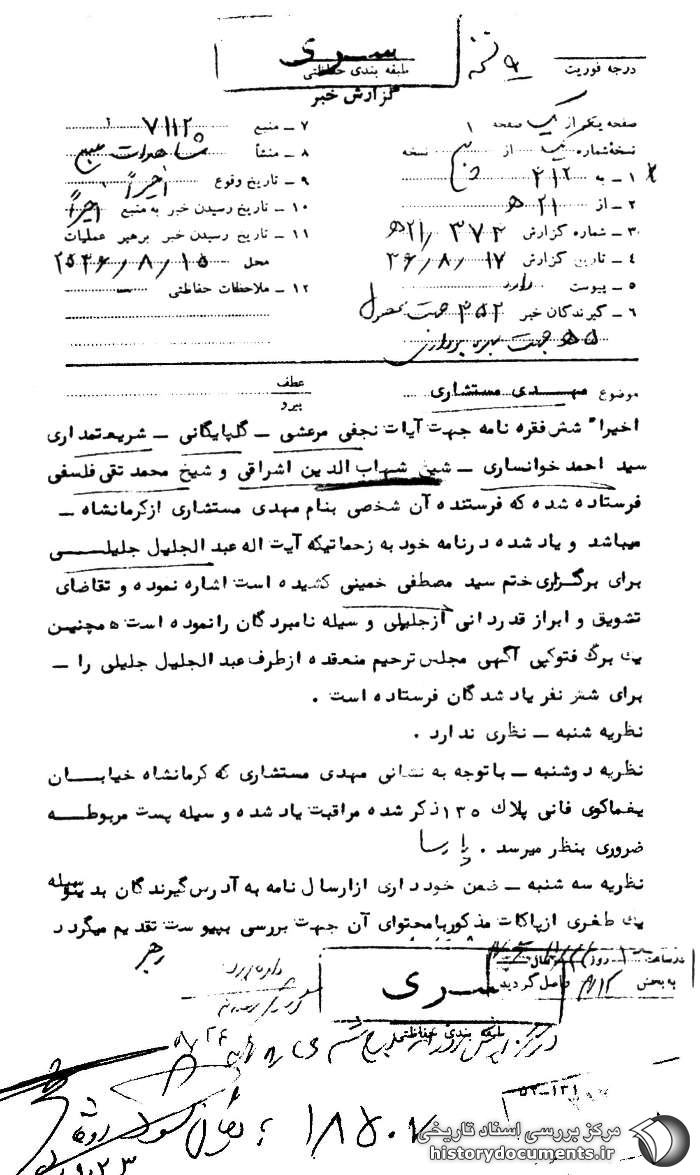 سری
طبقه بندی حفاظتی
گزارش خبر
درجه فوریت
صفحه یک از یک صفحه
نسخهٔ شماره از نسخه
۱ ـ به ۳۱۲
۲ ـ از ۲۱ ﻫ
۳ ـ شماره گزارش ۳۷۲ /۲۱ﻫ
۴ ـ تاریخ گزارش ۳۶/۸/۱۷
۵ ـ پیوست دارد
۶ ـ گیرندگان خبر ۳۵۲ جهت
جهت بهره برداری
۷ ـ منبع ۷۱۱۲
۸ ـ منشأ مشاهدات منبع
۹ ـ تاریخ وقوع اخیراً
۱۰ ـ تاریخ رسیدن خبر به منبع اخیراً
۱۱ ـ تاریخ رسیدن خبر برهبر عملیات
محل ۲۵۳۶/۸/۱۵
۱۲ ـ ملاحظات حفاظتی ـ
موضوع مهدی مستشاری
عطف
پیرو
اخیرا" شش فقره نامه جهت آیات نجفی مرعشی ـ گلپایگانی ـ شریعتمداری
سید احمد خوانساری ـ شیخ شهاب الدین اشراقی و شیخ محمد تقی فلسفی
فرستاده شده که فرستنده آن شخصی بنام مهدی مستشاری ازکرمانشاه ـ
میباشد و یاد شده درنامه خود به زحماتیکه آیت اله عبد الجلیل جلیلی
برای برگزاری ختم سید مصطفی خمینی کشیده است اشاره نموده و تقاضای
تشویق و ابراز قدردانی ازجلیلی و سیله نامبردگان را نموده است همچنین
یک برگ فتوکپی آگهی مجلس ترحیم منعقده ازطرف عبد الجلیل جلیلی را ـ
برای شش نفر یاد شدگان فرستاده است .
نظریه شنبه ـ نظری ندارد .
نظریه دوشنبه ـ باتوجه به نشانی مهدی مستشاری که کرمانشاه خیابان
یغماکوی فانی پلاک ۱۳۵ ذکر شده مراقبت یاد شده و سیله پست مربوطه
ضروری بنظر میرسد . پارسا
نظریه سه شنبه ـ ضمن خودداری ازارسال نامه به آدرس گیرندگان بدینوسیله
یک طغری ازپاکات مذکوربامحتوای آن جهت بررسی بپیوست تقدیم میگردد
رهبر
درساعت روز سال
به بخش ۳۱۲ واصل گردید
سری
طبقه بندی حفاظتی
۸/۲۶
۱۸۵۰۷
۵۲-۱۳۱
مرکز بررسی اسناد تاریخی
historydocuments.ir